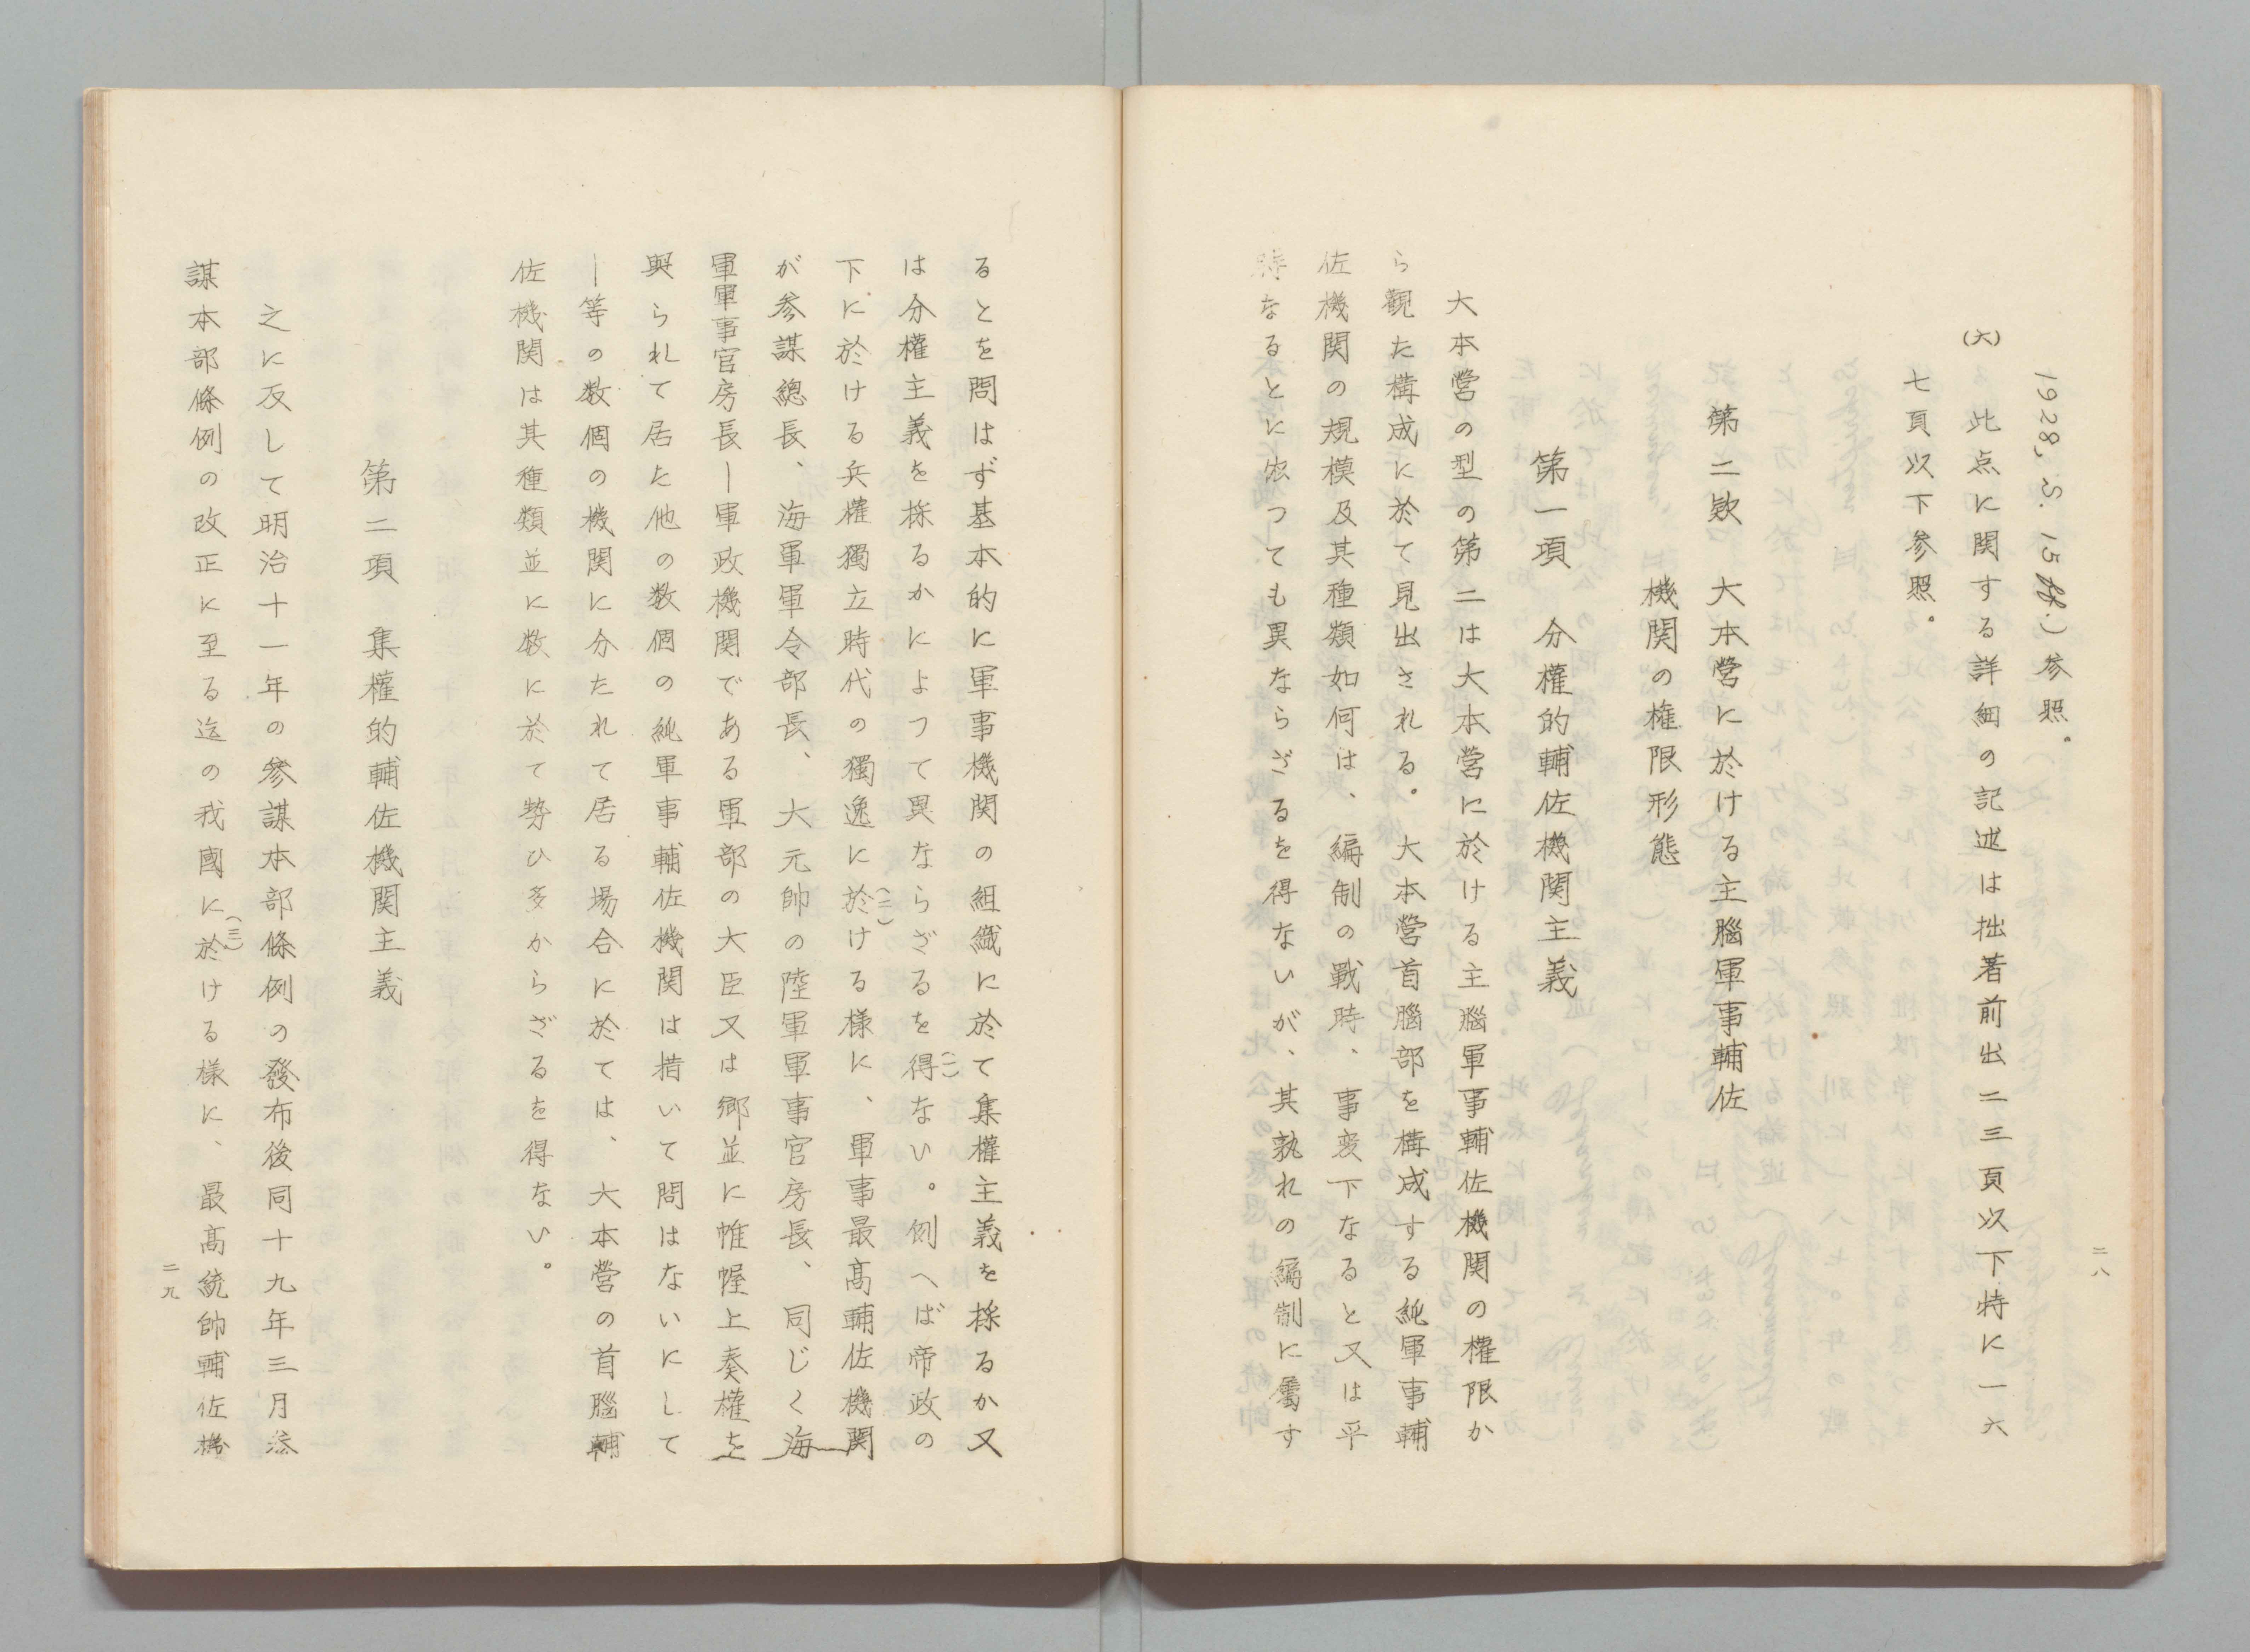 1928, S. 15 ff.) 参照。
(六) 此点に関する詳細の記述は拙著前出二三頁以下特に一六
七頁以下参照。
第二款 大本營に於ける主腦軍事輔佐
機関の権限形態
第一項 分權的輔佐機関主義
大本營の型の第二は大本營に於ける主腦軍事輔佐機関の權限か
ら觀た構成に於て見出される。大本營首腦部を構成する純軍事輔
佐機関の規模及其種類如何は、編制の戰時、事変下なると又は平
時なるとに依つても異ならざるを得ないが、其孰れの編制に屬す
二八
るとを問はず基本的に軍事機関の組織に於て集權主義を採るか又
は分權主義を採るかによつて異ならざるを得(一)ない。例へば帝政の
下に於ける兵權獨立時代の獨逸に於(二)ける樣に、軍事最高輔佐機関
が参謀總長、海軍軍令部長、大元帥の陸軍軍事官房長、同じく海
軍軍事官房長―軍政機関である軍部の大臣又は卿並に帷幄上奏權を
與られて居た他の数個の純軍事輔佐機関は措いて問はないにして
―等の数個の機関に分たれて居る場合に於ては、大本營の首腦輔
佐機関は其種類並に数に於て勢ひ多からざるを得ない。
第二項 集權的輔佐機関主義
之に反して明治十一年の參謀本部條例の發布後同十九年三月参
謀本部條例の改正に至る迄の我國に於(三)ける樣に、最高統帥輔佐機
二九